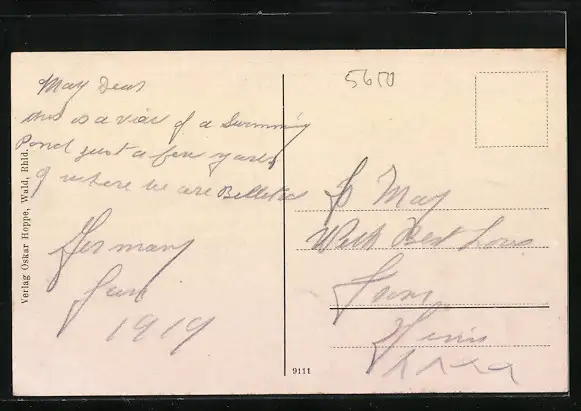 May Dear
this is a view of a Swimming
Pond just a few yards
of where we are Billeted
Germany
June
1919
Verlag Oskar Hoppe, Wald, Rhld.
5670
To May
With Best Love
From
9111